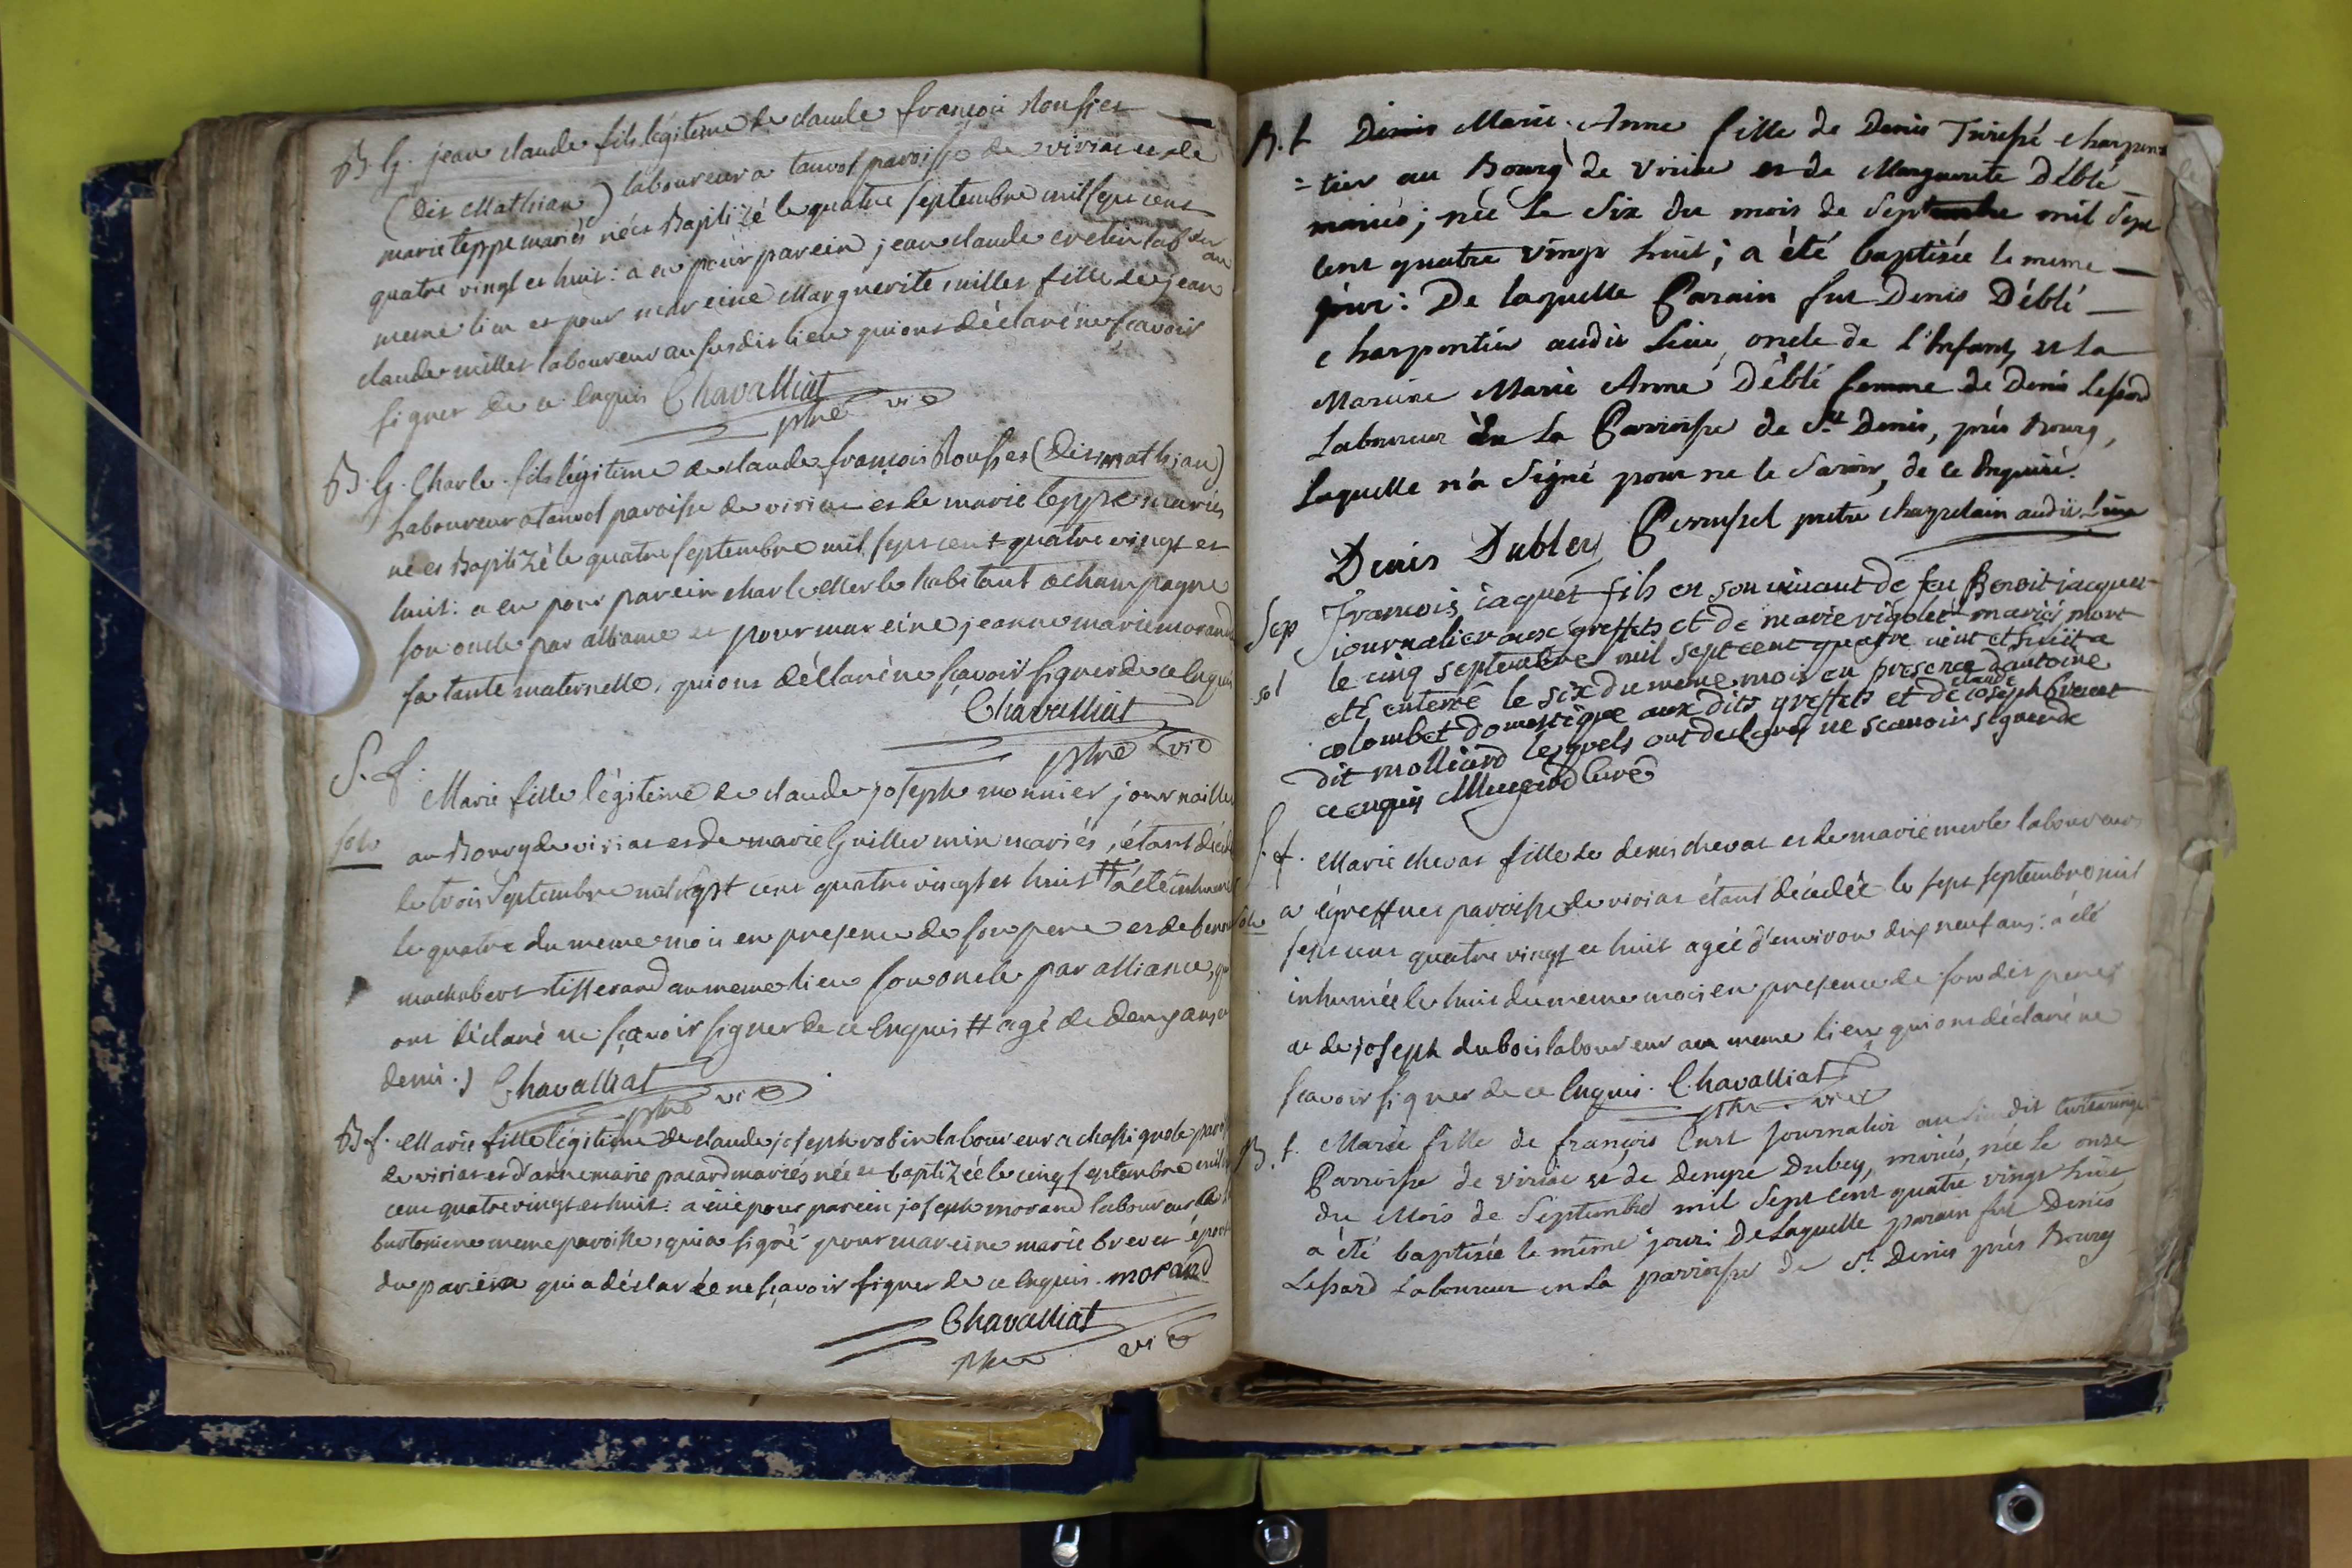 B. G. jean claude fils légitime de claude françois Roussier
(dit Mathian) laboureur a tanvol paroisse de viriat et de
marie teppe mariés né et Baptizé le quatre septembre mil sept cent
quatre vingt et huit : a eu pour parein jean claude cretin lab eur au
meme lieu et pour mareine Marguerite millet fille de jean
claude millet laboureur au susdit lieu qui ont déclaré ne sçavoir
signer de ce Enquis Chavalliat
ptre vic
B. G. Charle fils légitime de claude françois Roussier (Dit mathian)
Laboureur a tanvol paroisse de viriat et de marie teppe mariés
né et Baptizé le quatre septembre mil sept cent quatre vingt et
huit : a eu pour parein charle Merle habitant a champagne
son oncle par alliance et pour mareine jeanne marie morand
sa tante maternelle, qui ont déclaré ne sçavoir signer de ce Enquis
Chavalliat
ptre vic
S. f.
Marie fille légitime de claude joseph monnier journaillier
solv au Bourg de viriat et de marie Guillermin mariés, étant décédé
le trois Septembre mil sept cent quatre vingt et huit # a été inhumé
le quatre du meme mois en presence de son pere et de benoit
machabert tisserand au meme lieu son oncle par alliance, qui
ont déclaré ne sçavoir signer de ce Enquis # agé de deux ans et
demi .) Chavalliat
ptre vic
B f. Marie fille légitime de claude joseph robin laboureur a chassignole par
de viriat et d'anne marie pacard mariés née et baptizée le cinq septembre mil
cent quatre vingt et huit : a eue pour parein joseph morand laboureur a
burtoniere meme paroisse, qui a signé pour mareine marie brevet épouse
du parein qui a déclarée ne sçavoir signer de ce Enquis. morand
Chavalliat
ptre vic
B. f Denis Marie Anne fille de Denis charpen
=tier au Bourg de Viriat et de Marguerite Déblé
mariés ; née le Six du mois de Septembre mil Sept
Cent quatre vingt huit ; a été baptisée le meme
jour : De laquelle Parain fut Denis Déblé
charpentier audit Lieu, oncle de l'Enfant, et la
Mareine Marie Anne Déblé femme de Denis Lessard
Laboureur en La Parroisse de St Denis, près Bourg,
Laquelle n'a Signé pour ne le Savoir, de ce Enquise.
Denis Dubley Perrussel pretre chapelain audit Lieu
Sep François jaquet fils en son vivant de feu Benoit jacquet
journalier aux greffets et de marie vigolet mariés mort
le cinq septembre mil sept cent quatre vint et huit a
sol eté enterré le six du meme mois en presence d'antoine
colombet domestique aux dits greffets et de claude joseph Brevet
dit molliard lesquels ont declaré ne scauoir signer de
ce enquis curé
S. f. Marie chevat fille de denis chevat et de marie merle laboureurs
sole a Egreffets paroisse de viriat étant décédée le sept septembre mil
sept cent quatre vingt et huit agée d'environ dix neuf ans : a été
inhumée le huit du meme mois en presence de son dit pere
et de joseph dubois laboureur au meme lieu qui ont déclaré ne
sçavoir signer de ce Enquis. Chavalliat
ptre vic
B. f. Marie fille de françois Curt journalier au lieu dit
Parroisse de viriat et de Denyse Dubey, mariés, née le onze
du Mois de Septembre mil Sept Cent quatre vingt huit
a été baptisée le même jour : De Laquelle parain fut Denis
Lessard Laboureur en La parroisse de St Denis près Bourg